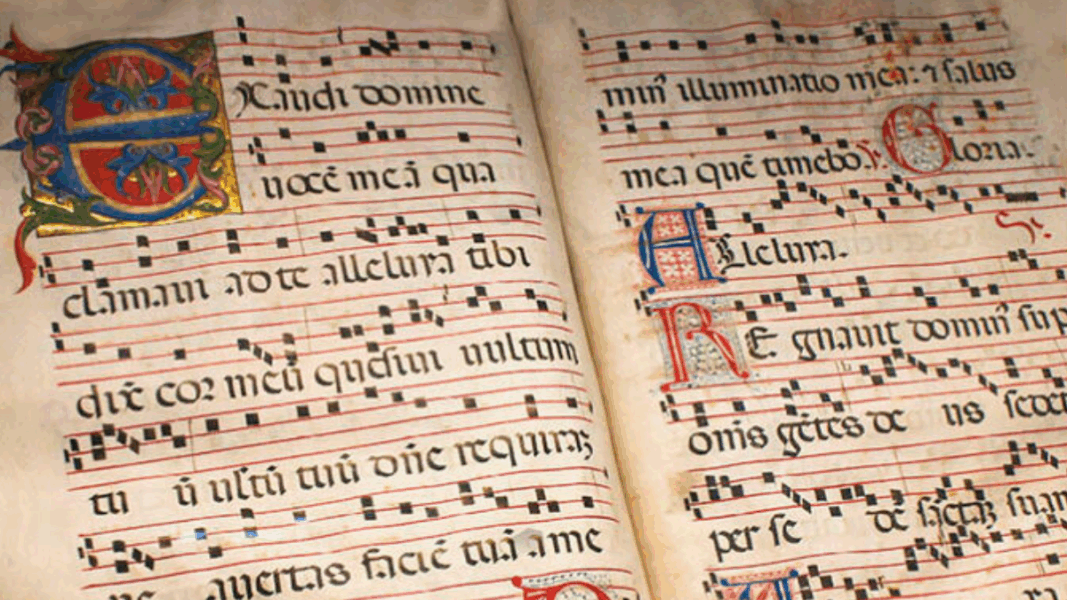 EXaudi domine
uocē meā qua
clamaui ad te alleluya tibi
dix̄ cor meū quesiui uultum
tu ū ultū tuū dn̄e requirā
ne auertas faciē tuā a me
min̄ illuminatio mea: ⁊ salus
mea quē timebo. Gloria.
ALleluya.
REgnauit domin̄ sup
om̄s gētes de us sedet
per se dē sctā suam